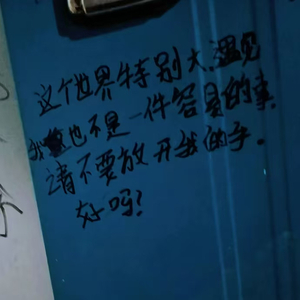 这个世界特别大,遇见
我也不是一件容易的事
请不要放开我的手.
好吗?